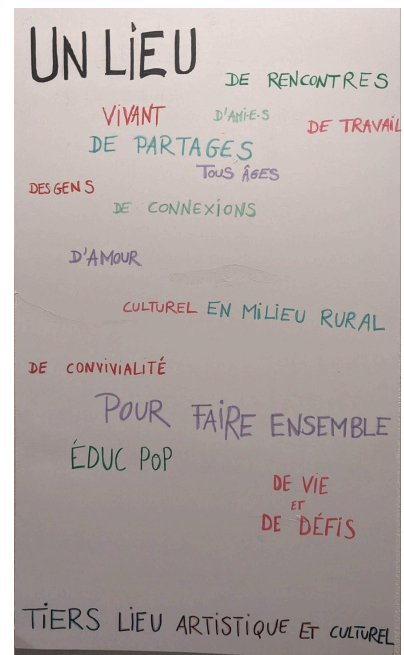 UN LiEU
DE RENCONTRES
ViVANT
D'AMi·E·S
DE TRAVAiL
DE PARTAGES
TOUS ÂGES
DES GENS
DE CONNEXiONS
D'AMOUR
CULTUREL EN MiLiEU RURAL
DE CONViViALiTÉ
POUR FAiRE ENSEMBLE
ÉDUC PoP
DE ViE
ET
DE DÉFiS
TiERS LiEU ARTiSTiQUE ET CULTUREL